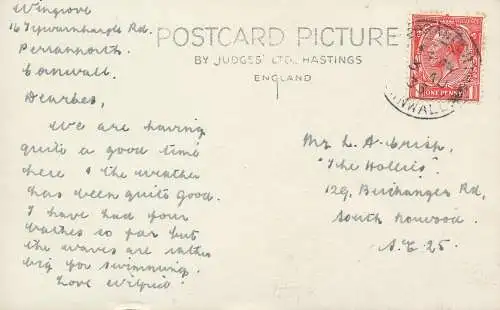 Wingrove
16 Tywarnhayle Rd.
Perranporth
Cornwall.
Dear Les,
We are having
quite a good time
here & the weather
has been quite good.
I have had four
bathes so far but
the waves are rather
big for swimming.
Love Wilfrid.
POSTCARD PICTURE
BY JUDGES' LTD., HASTINGS
ENGLAND
ONE PENNY
CORNWALL
Mr L. A. Crisp,
"The Hollies",
129, Birchanger Rd,
South Norwood.
S.E. 25.